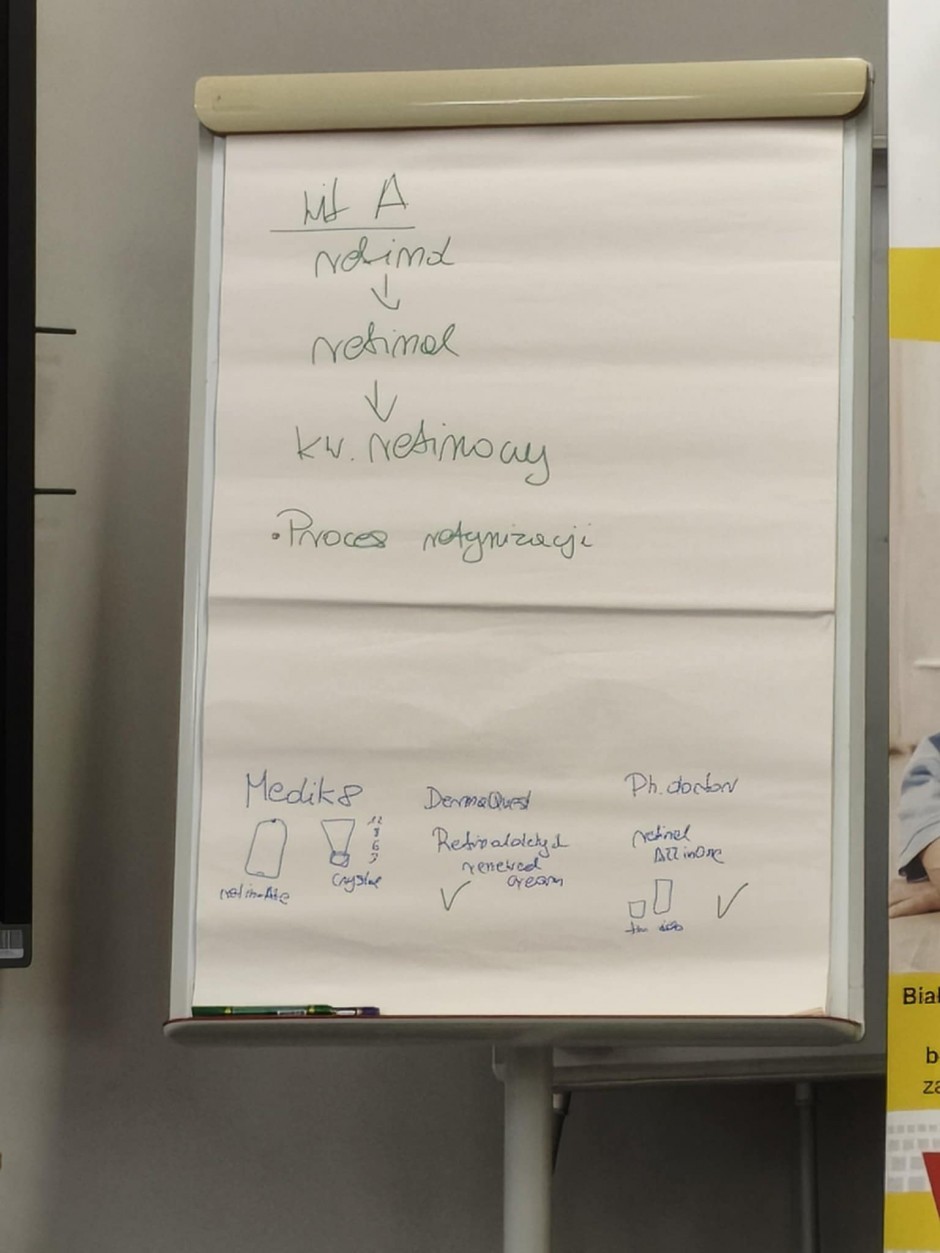 Wit A
retinol
↓
retinal
↓
kw. retinowy
• Proces retynizacji
Medik8
12
8
6
3
Crystal
DermaQuest
Retinaldehyd
renewal
cream
Ph. doctor
retinal
All in One
Biał
b
za